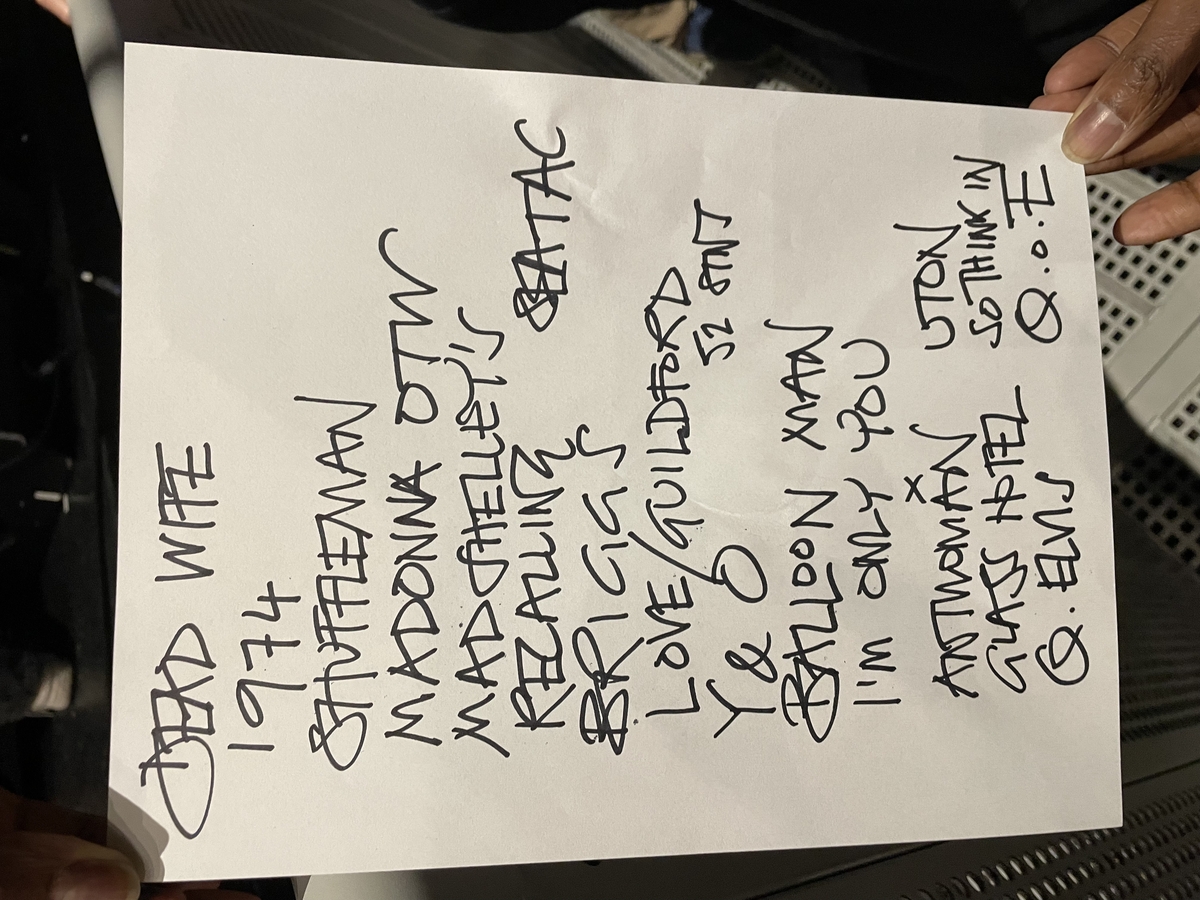 DEAD WIFE
1974
SHUFFLEMAN
MADONNA OTW
MAD SHELLEY'S
BRIGGS
LOVE/GUILDFORD
Y & O
BALLOON MAN
I'M ONLY YOU
X
ANTWOMAN
GLASS HOTEL
Q. ELVIS
UTON
SO THINK IN
Q.o.E